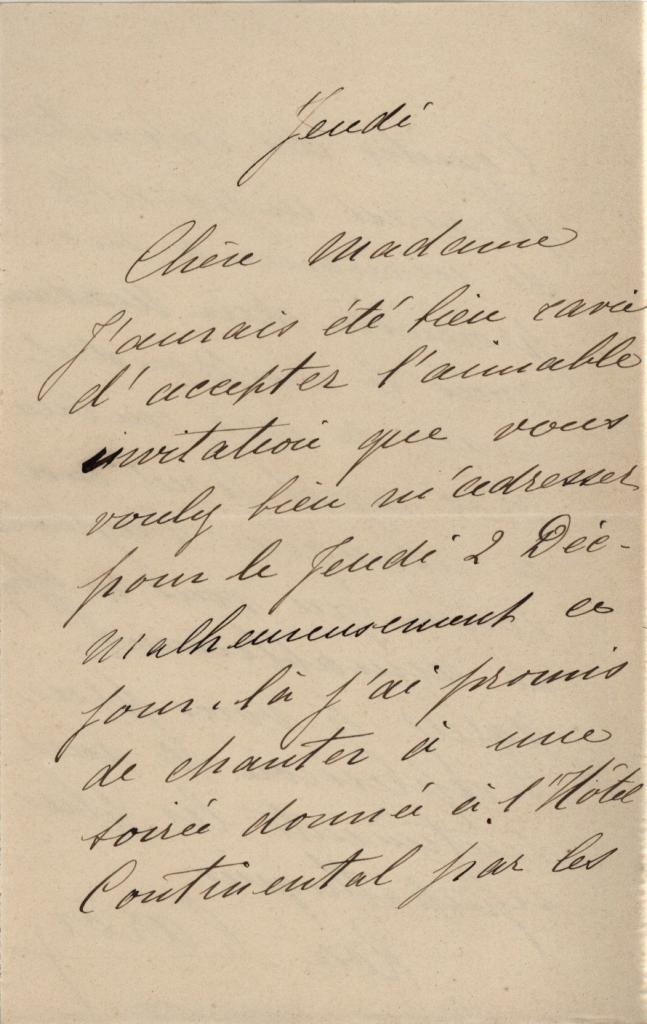 Jeudi
Chère Madame
J'aurais été bien ravie
d'accepter l'aimable
invitation que vous
voulez bien m'adresser
pour le Jeudi 2 Déc-
Malheureusement ce
jour-là j'ai promis
de chanter à une
soirée donnée à l'Hôtel
Continental par les